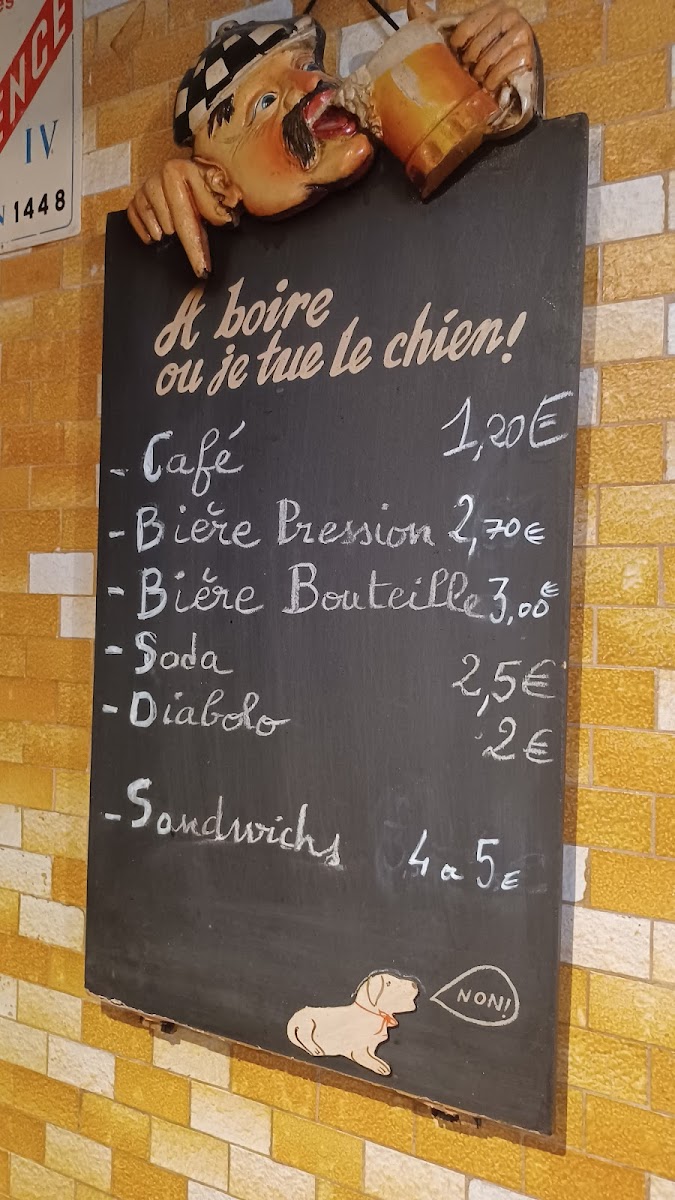 ENCE
IV
1448
A boire
ou je tue le chien!
- Café 1,20€
- Bière Pression 2,70€
- Bière Bouteille 3,00€
- Soda 2,5€
- Diabolo 2€
- Sandwichs 4 a 5€
NON!